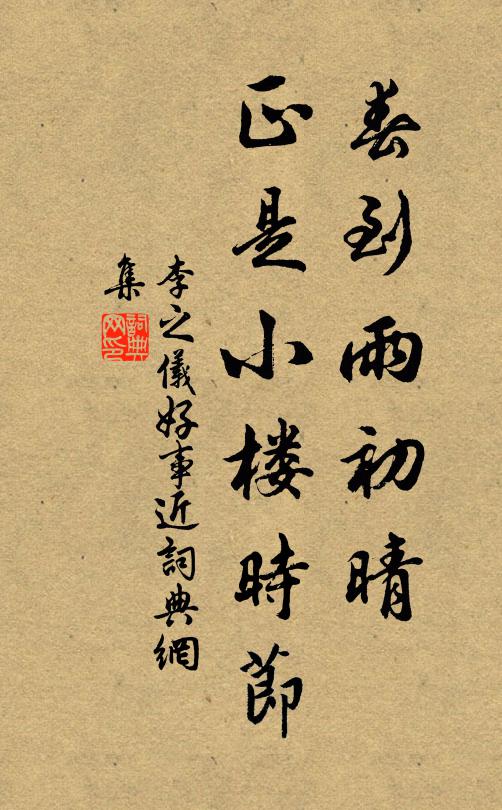 春到雨初晴
正是小楼時節
李之儀好事近詞典網
集
詞典网印